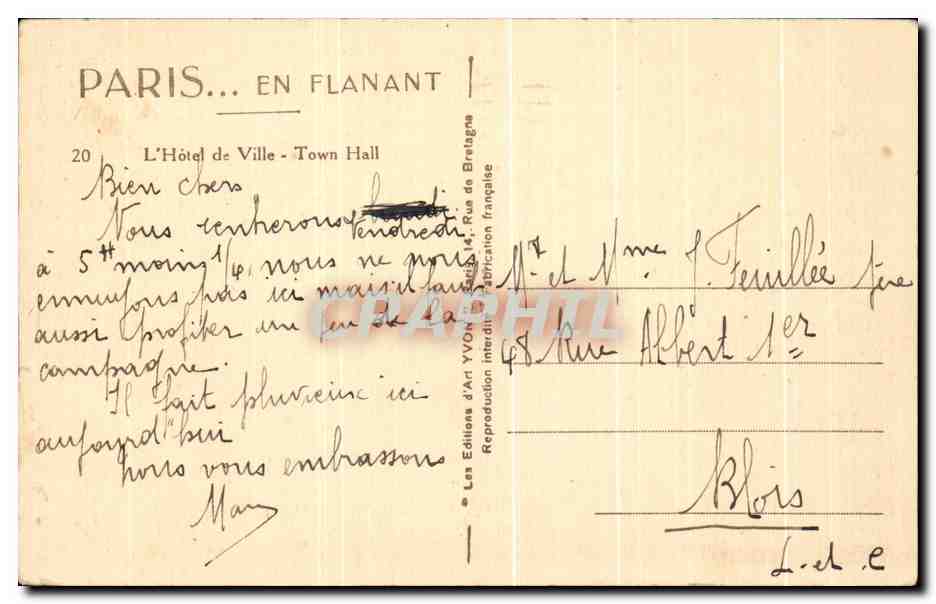 PARIS... EN FLANANT
20 L'Hôtel de Ville - Town Hall
Bien chers
Nous rentrerons
Vendredi
à 5H moins 1/4, nous ne nous
ennuyons pas ici mais il faut
aussi profiter un peu de la
campagne.
Il fait pluvieux ici
aujourd'hui
nous vous embrassons
® Les Editions d'Art YVON Paris 14, Rue de Bretagne
Reproduction interdite Fabrication française
CPAPHIL
Mr et Mme J. Feuillée père
48 Rue Albert 1er
Blois
L. et C